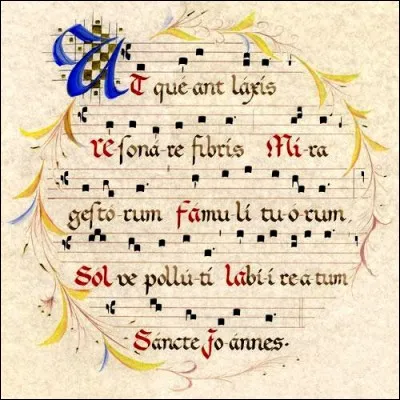 UT qué-ant láxis
re-soná-re fibris Mi-ra
gestó-rum Fámu-lí tu-ó-rum,
Sol-ve pollú-ti lábi-í re-a-tum
Sáncte Jo-ánnes.